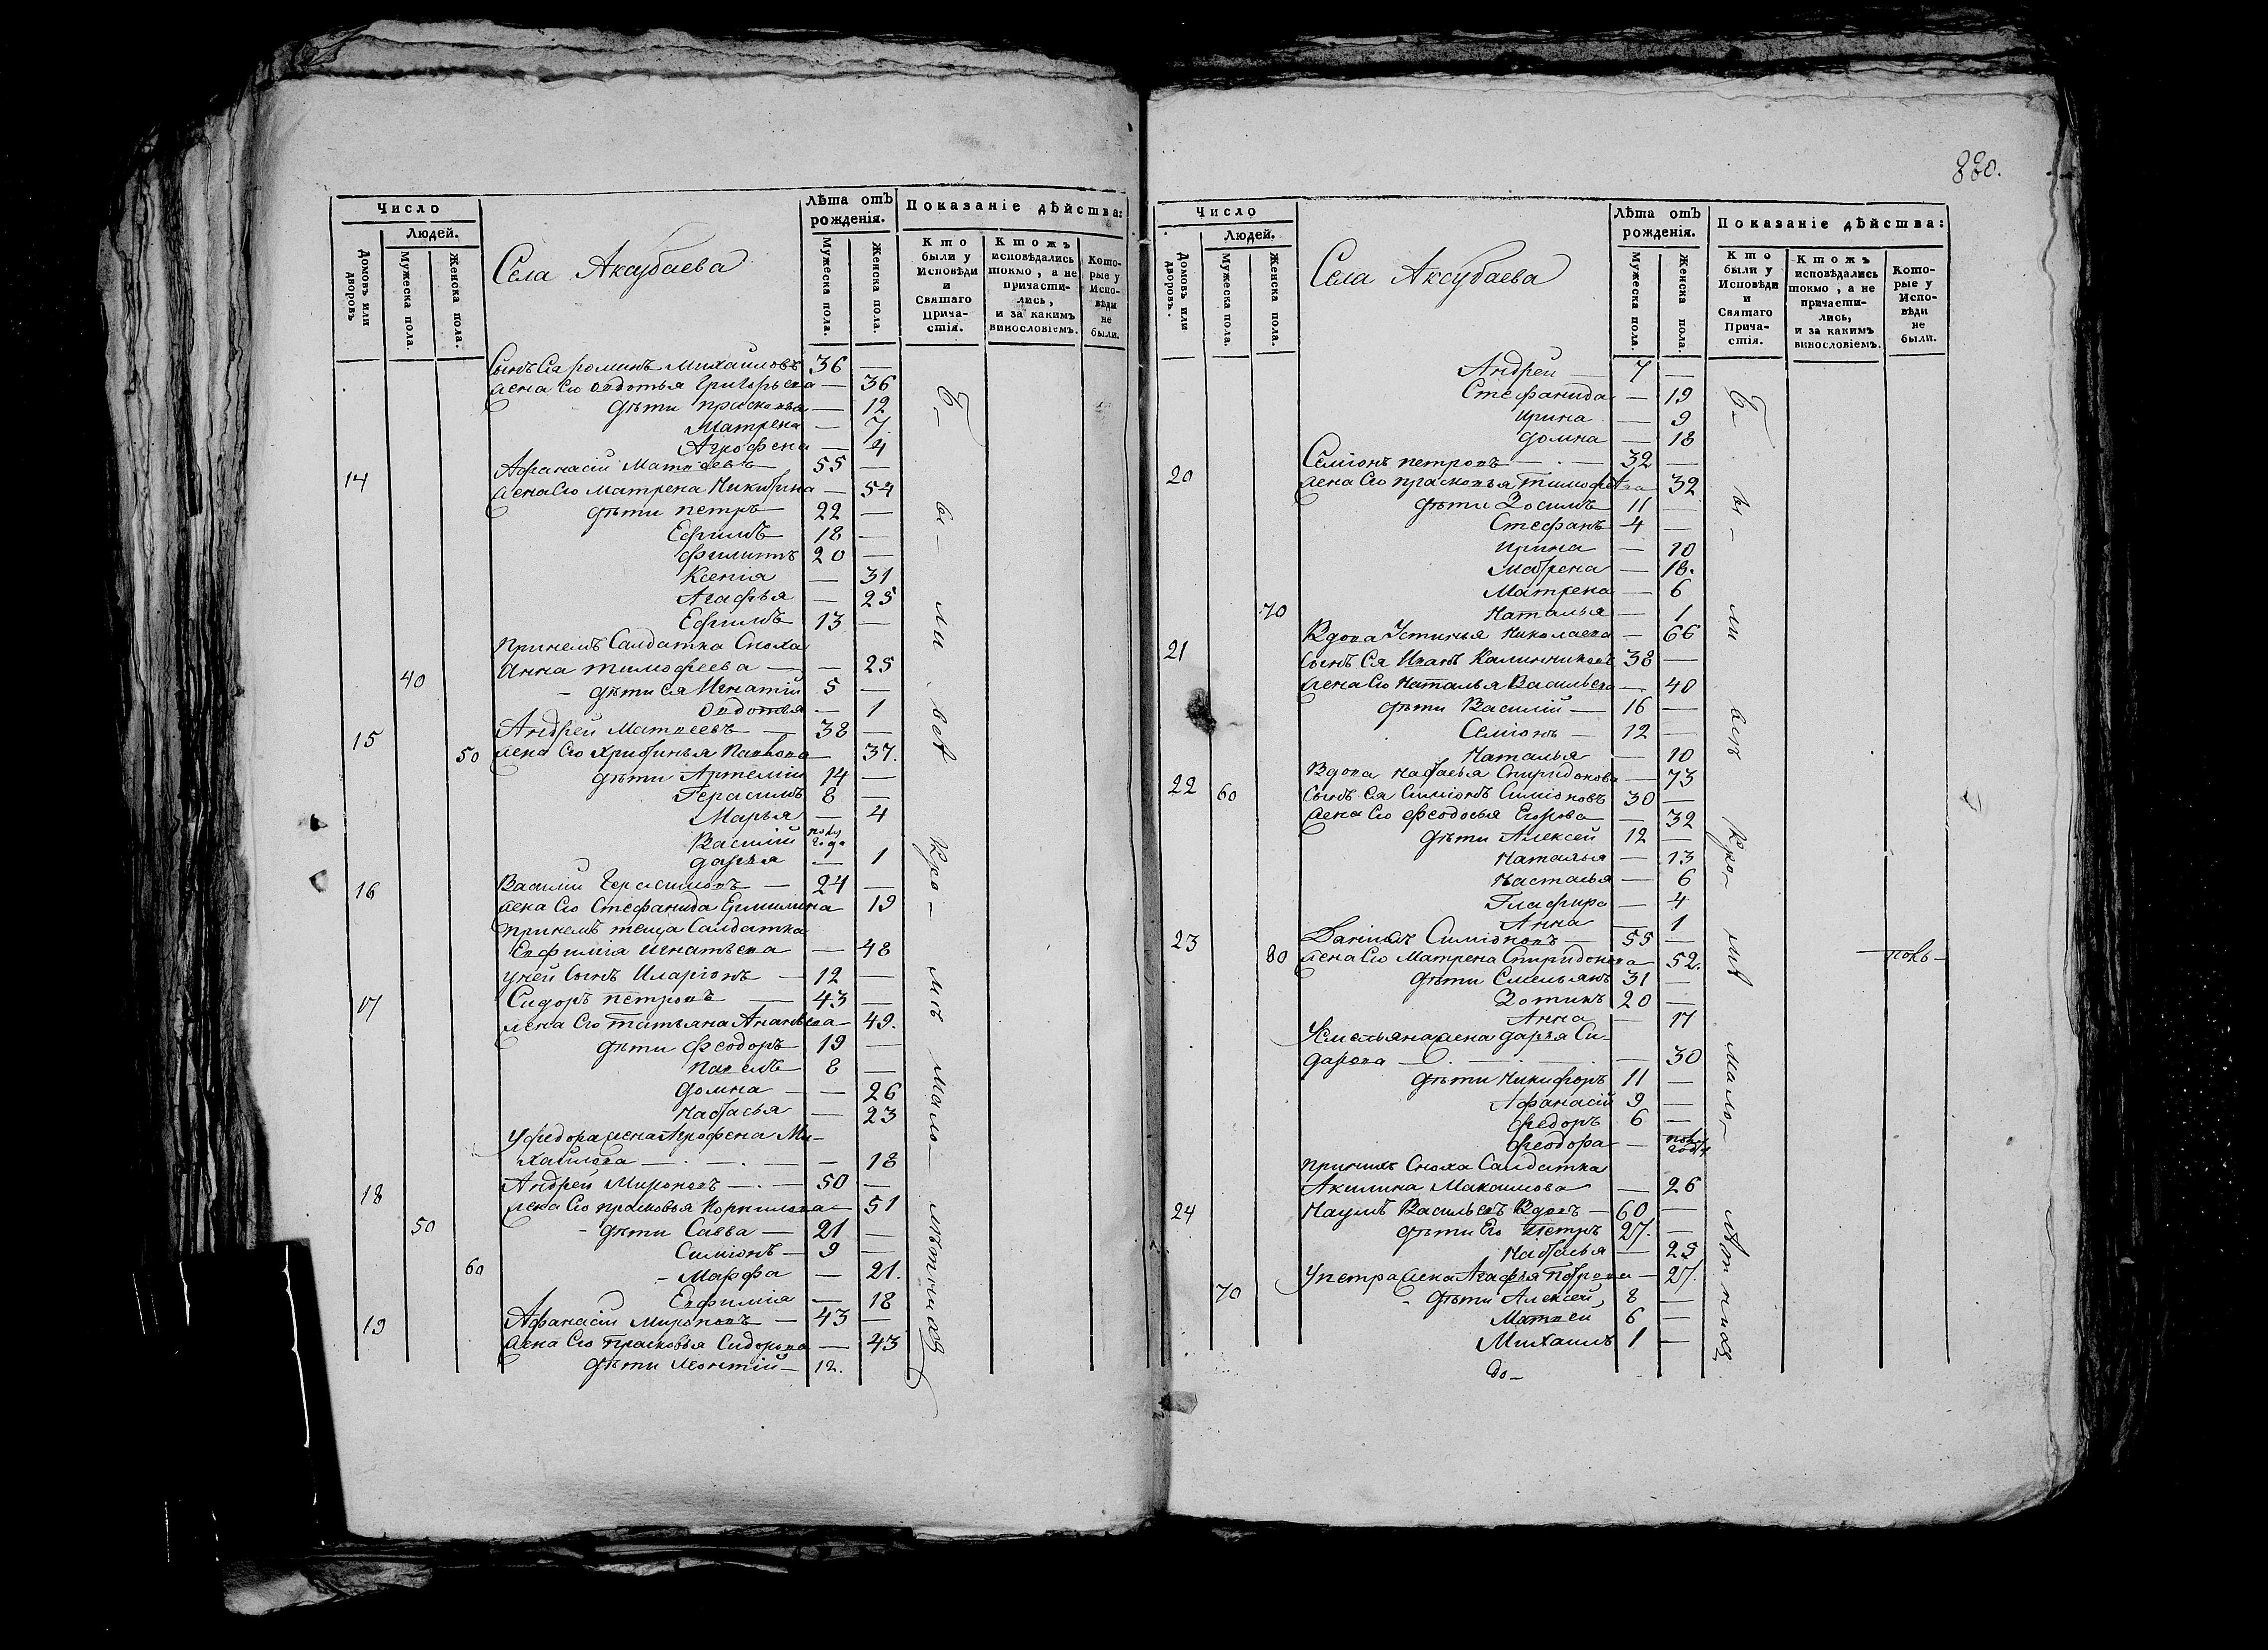 Число
Людей.
Домовъ или дворовъ
Мужеска пола.
Женска пола.
Села Аксубаева
Лѣта отъ рожденія.
Мужеска пола.
Женска пола.
Показаніе дѣйства:
Кто были у Исповѣди и Святаго Причастія.
Ктожъ исповѣдались токмо, а не причастились, и за какимъ винословіемъ.
Которые у Исповѣди не были.
Сынъ Ея Фоминъ Михайловъ 36 —
жена Его Овдотья Григорьева — 36
дѣти Прасковья — 12
Матрена — 7
Агрофена — 4
14 Афанасій Матвеевъ 55 —
жена Его Матрена Никитина — 54
дѣти Петръ 22 —
Ефимъ 18 —
Филиппъ 20 —
Ксенія — 31
Агафья — 25
Ефимъ 13 —
При немъ Салдатка Сноха
Анна Тимофеева — — 25
40 дѣти Ея Игнатій 5 —
Овдотья — 1
15 Андрей Матвеевъ — 38 —
50 жена Его Христинья Павлова — 37.
дѣти Артемій 14 —
Герасимъ 8 —
Марья — 4
Василій полу года
Дарья — 1
16 Василій Герасимовъ — 24 —
жена Его Стефанида Ермилина 19
При немъ теща Салдатка
Евфимія Игнатьева — 48
У ней Сынъ Иларіонъ — 12 —
17 Сидоръ Петровъ — 43 —
жена Его Татьяна Ананьева — 49.
дѣти Феодоръ 19 —
Павелъ 8 —
Домна — — 26
Настасья — 23
У Фидора жена Агрофена Ми-
хайлова — . — . — — 18
18 Андрей Мироновъ — . — 50 —
жена Его Прасковья Корнилова — 51
50 дѣти Савва — 21 —
Симіонъ — 9 —
60 Марфа — 21.
Евфимія — 18
19 Афанасій Мироновъ — 43 —
жена Его Прасковья Сидорова — 43
дѣти Леонтій — 12.
Бы- ли всѣ Кро- мѣ мало- лѣтнихъ
880.
Число
Людей.
Домовъ или дворовъ.
Мужеска пола.
Женска пола.
Села Аксубаева
Лѣта отъ рожденія.
Мужеска пола.
Женска пола.
Показаніе дѣйства:
Кто были у Исповѣди и Святаго Причастія.
Ктожъ исповѣдались токмо, а не причастились, и за какимъ винословіемъ.
Которые у Исповѣди не были.
Андрей — 7 —
Стефанида — 19
Ирина — 9
Домна — 18
20 Семіонъ Петровъ — . — 32 —
жена Его Прасковья Тимофеева 32
дѣти Зосимъ 11 —
Стефанъ 4 —
Ирина — 10
Матрена — 18.
Матрена — 6
70 Наталья — 1
21 Вдова Устинья Николаева — 66
Сынъ Ея Иванъ Калинниковъ 38 —
жена Его Наталья Васильева — 40
дѣти Василій — 16 —
Семіонъ — 12 —
Наталья — 10
22 Вдова Настасья Спиридонова — 73
60 Сынъ Ея Симіонъ Симіоновъ 30 —
жена Его Феодосья Егорова — 32
дѣти Алексей 12 —
Наталья — 13
Настасья — 6
Глафира — 4
Анна — 1
23 Даніилъ Симіоновъ — 55 —
80 жена Его Матрена Спиридонова — 52.
дѣти Емельянъ 31 —
Зотикъ 20 —
Анна — 17
У Емельяна жена Дарья Си-
дарова — . — . — — 30
дѣти Никифоръ 11 —
Афанасій 9 —
Федоръ 6 —
Феодора — полу годы
При нихъ Сноха Салдатка
Акилина Макаимова — 26
24 Наумъ Васильевъ Вдовъ — 60 —
дѣти Его Петръ 27. —
Настасья — 25
У Петра жена Агафья Петрова — 27.
70 дѣти Алексей 8 —
Матвей 6 —
Михаилъ 1 —
до-
Бы- ли всѣ Кро- мѣ мало- лѣтнихъ